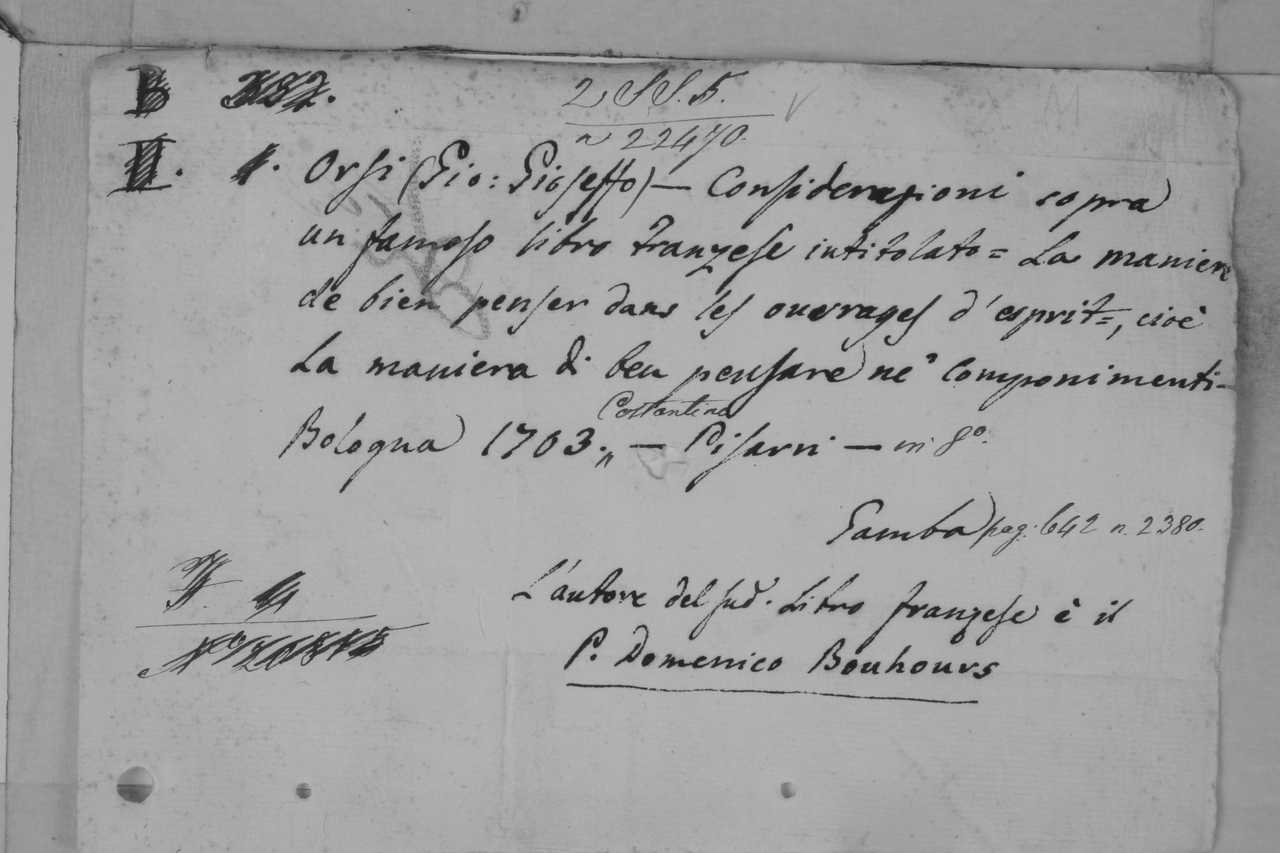 B
2 SS. 5.
n 22470.
II. 4. Orsi (Gio: Gioseffo) — Considerazioni sopra
un famoso libro franzese intitolato = La maniere
de bien penser dans les ouvrages d'esprit =, cioè
La maniera di ben pensare ne' componimenti -
Costantino
Bologna 1703., — Pisarri — in 8º.
Gamba pag. 642 n. 2380.
L'autore del sud. Libro franzese è il
P. Domenico Bouhours